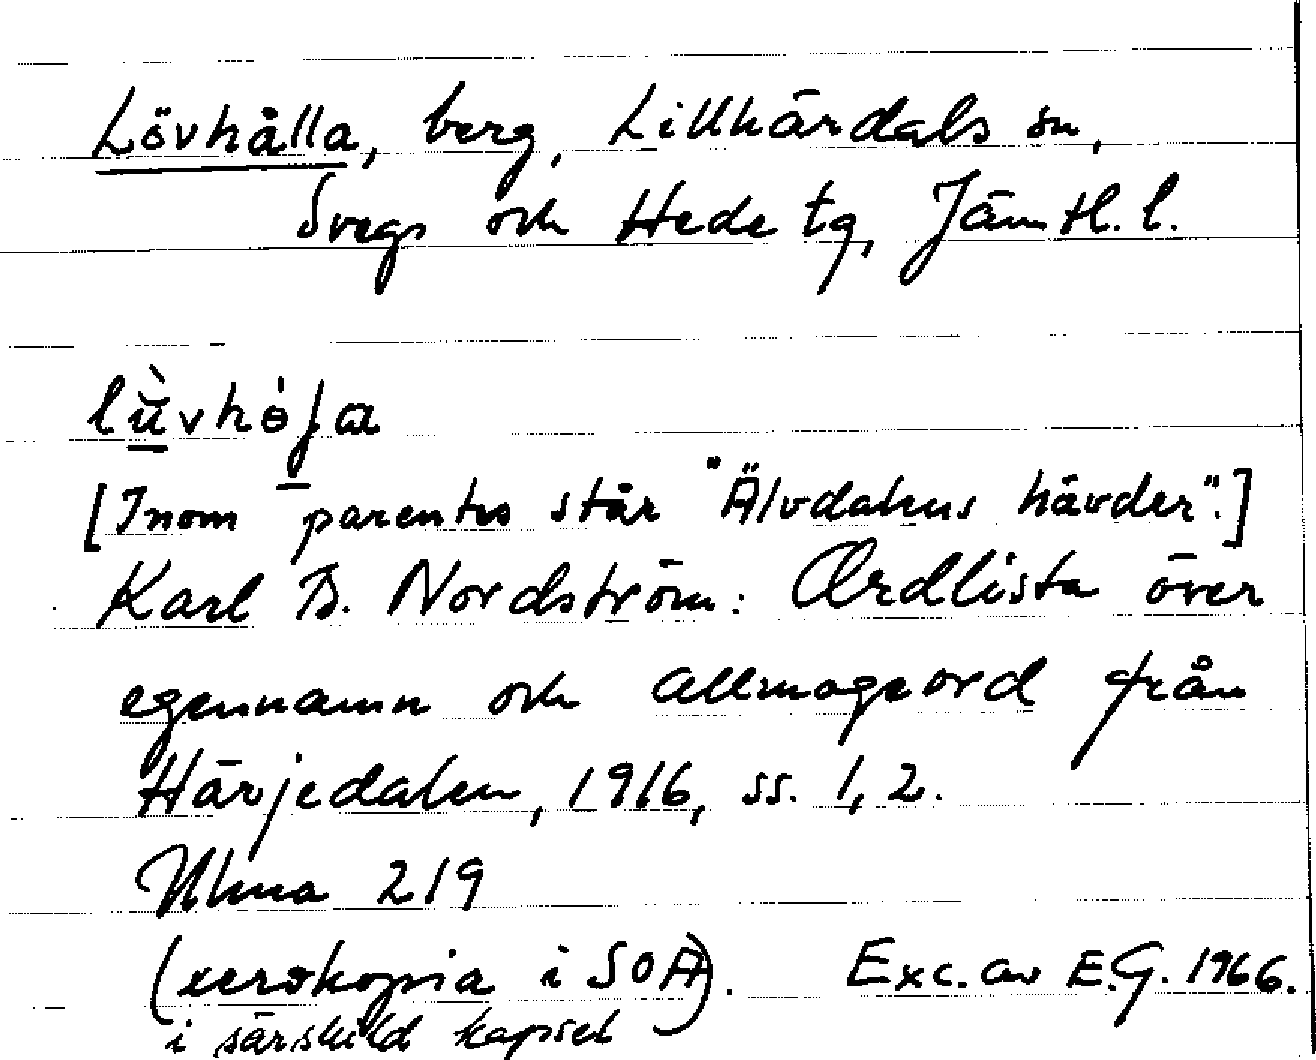 Lövhålla, berg, Lillhärdals sn,
Svegs och Hede tg, Jämtl. l.
lǜvhɵ̇ʃa
[Inom parentes står "Älvdalens hävder".]
Karl B. Nordström: Ordlista över
egennamn och allmogeord från
Härjedalen, 1916, ss. 1, 2.
Ulma 219
(xerokopia i SOA). Exc. av E.G. 1966.
i särskild kapsel